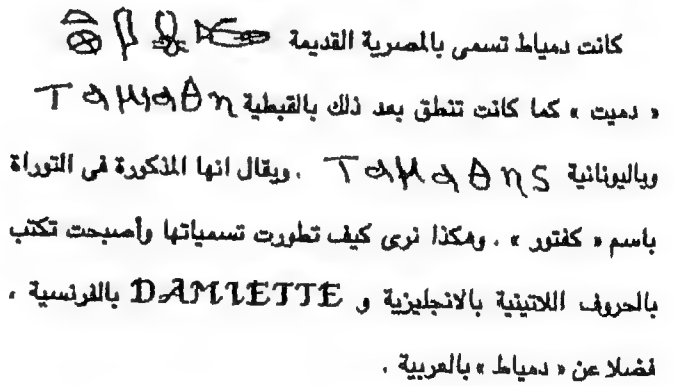 كانت دمياط تسمى بالمصرية القديمة
« دميت » كما كانت تنطق بعد ذلك بالقبطية
وباليونانية ΤαμαθηS . ويقال انها المذكورة فى التوراة
باسم « كفتور » . وهكذا نرى كيف تطورت تسمياتها وأصبحت تكتب
بالحروف اللاتينية بالانجليزية و DAMIETTE بالفرنسية ،
فضلا عن « دمياط » بالعربية .